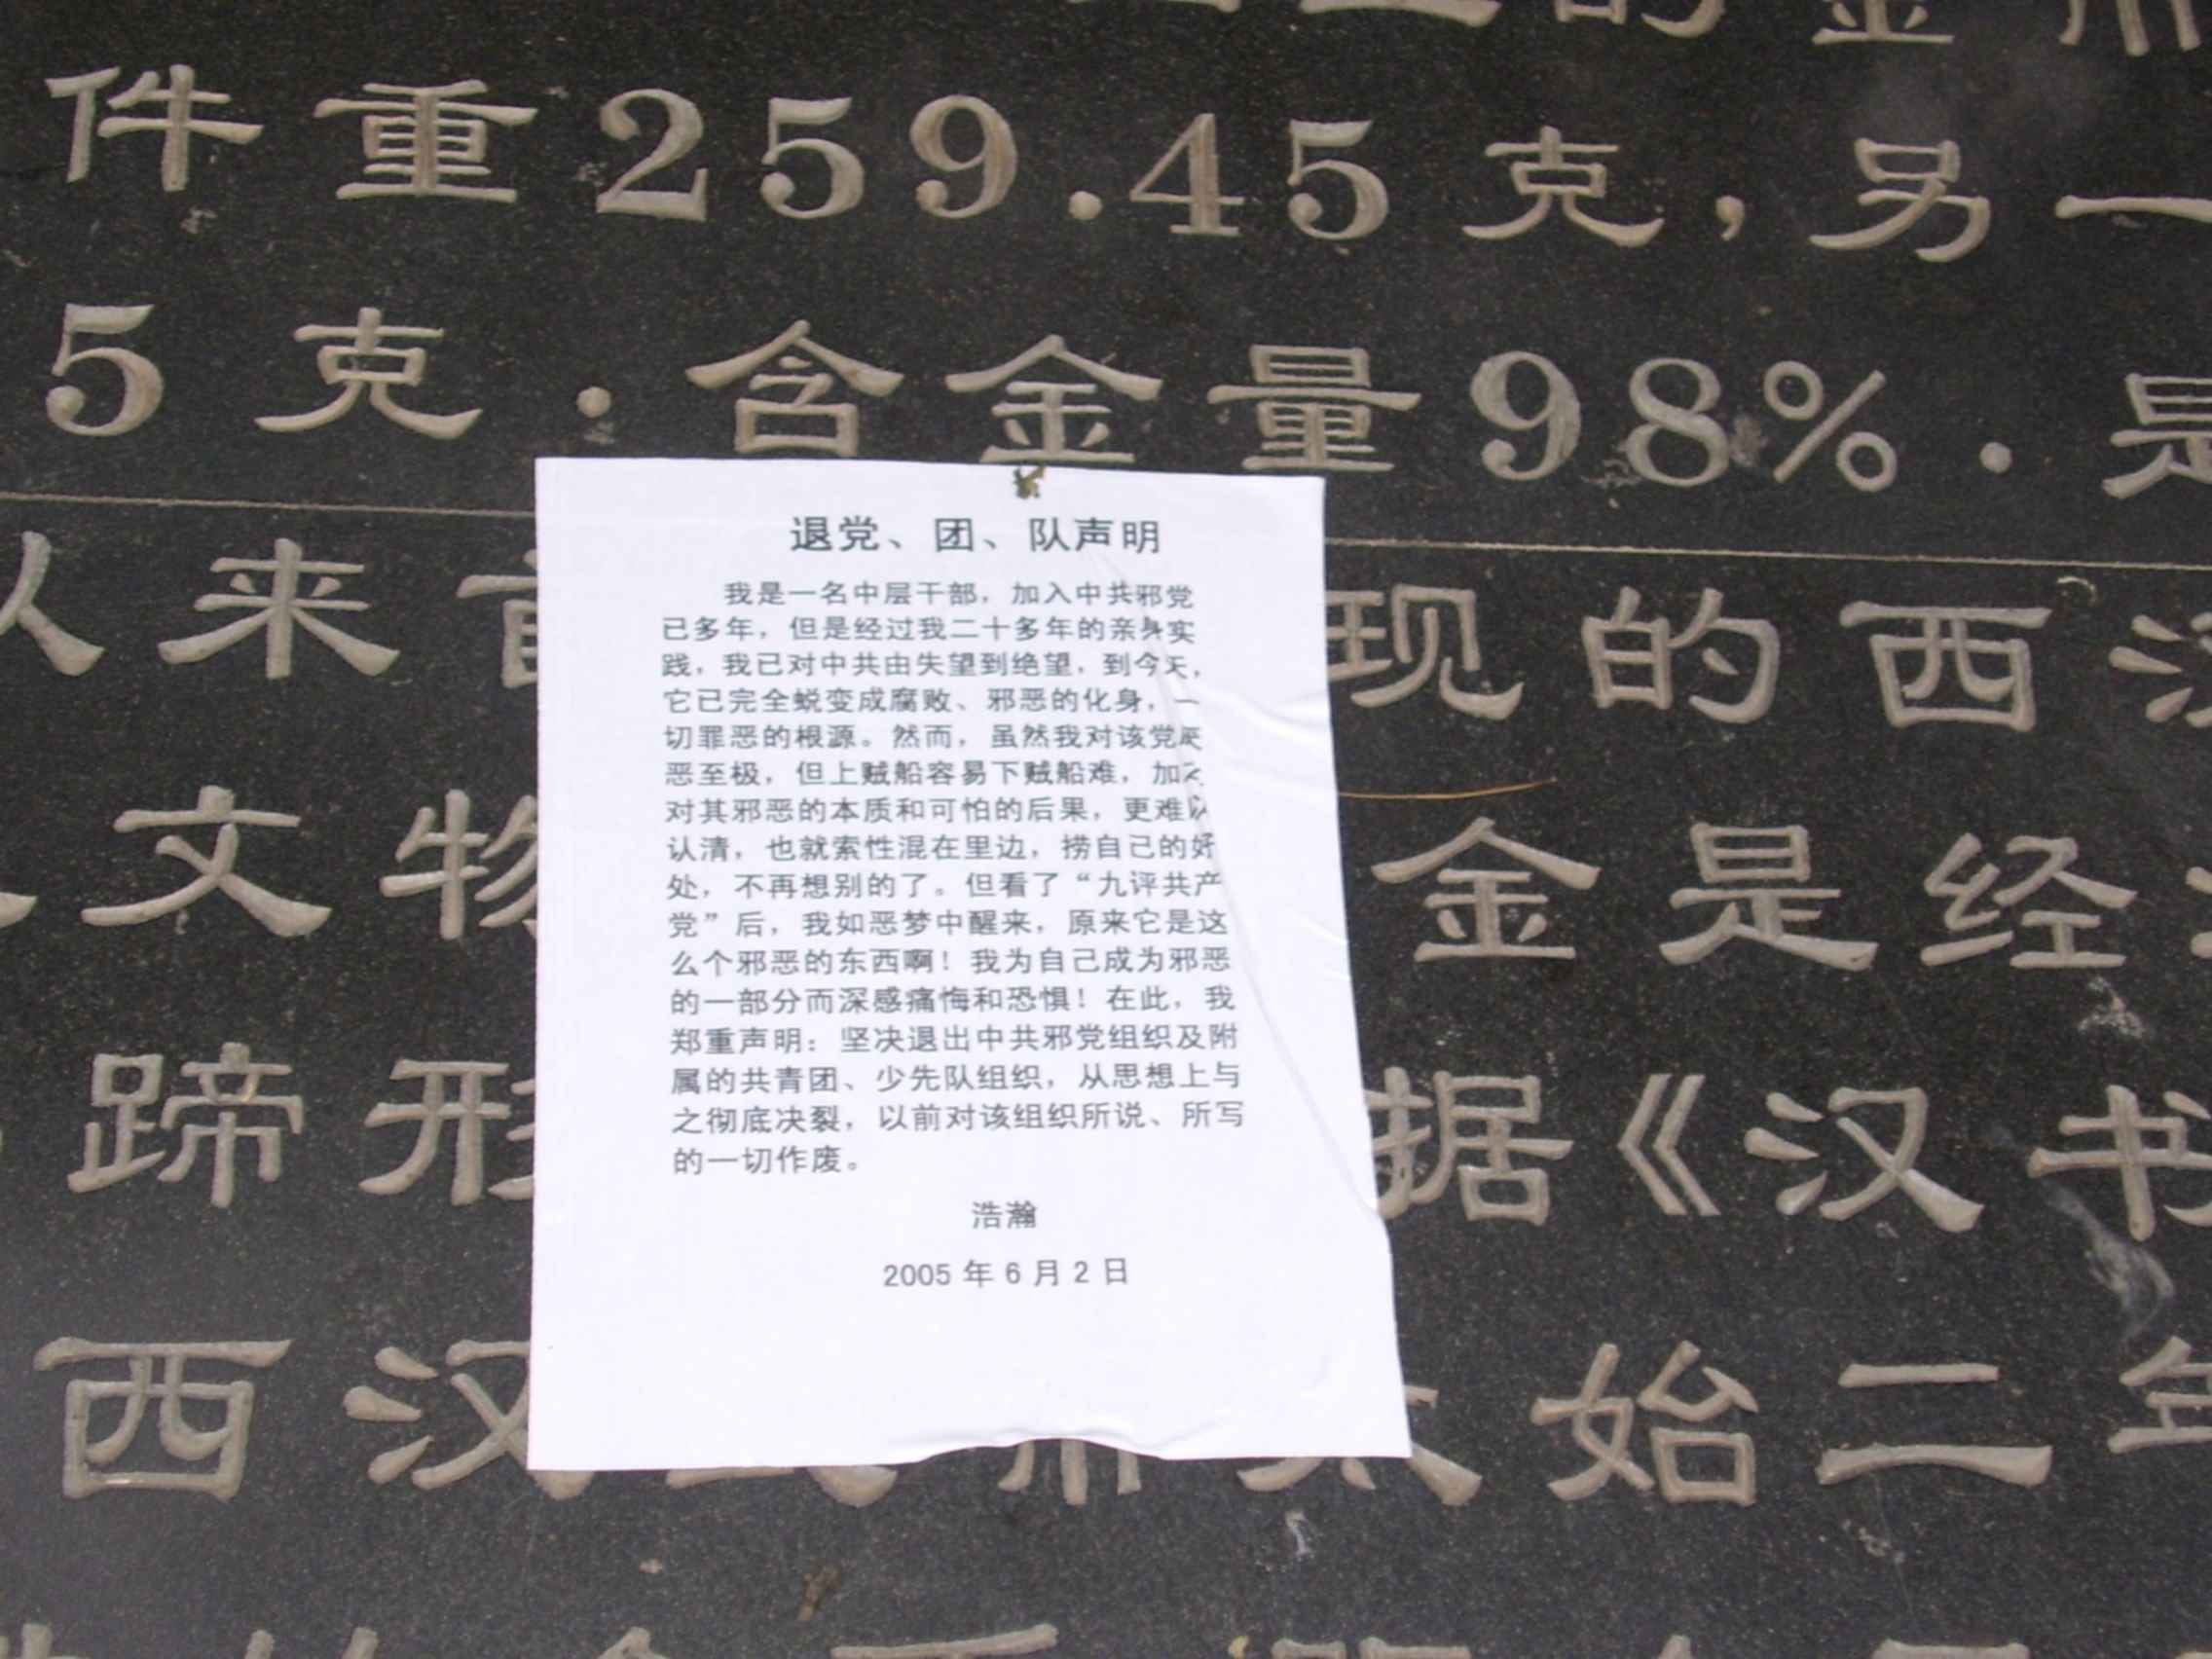 件重259.45克，另一
5克.含金量98%.是
来
现的西
文物
金是经
蹄形
据《汉书
西汉
始二年
退党、团、队声明
我是一名中层干部，加入中共邪党
已多年，但是经过我二十多年的亲身实
践，我已对中共由失望到绝望，到今天，
它已完全蜕变成腐败、邪恶的化身，一
切罪恶的根源。然而，虽然我对该党厌
恶至极，但上贼船容易下贼船难，加之
对其邪恶的本质和可怕的后果，更难以
认清，也就索性混在里边，捞自己的好
处，不再想别的了。但看了“九评共产
党”后，我如恶梦中醒来，原来它是这
么个邪恶的东西啊！我为自己成为邪恶
的一部分而深感痛悔和恐惧！在此，我
郑重声明：坚决退出中共邪党组织及附
属的共青团、少先队组织，从思想上与
之彻底决裂，以前对该组织所说、所写
的一切作废。
浩瀚
2005年6月2日